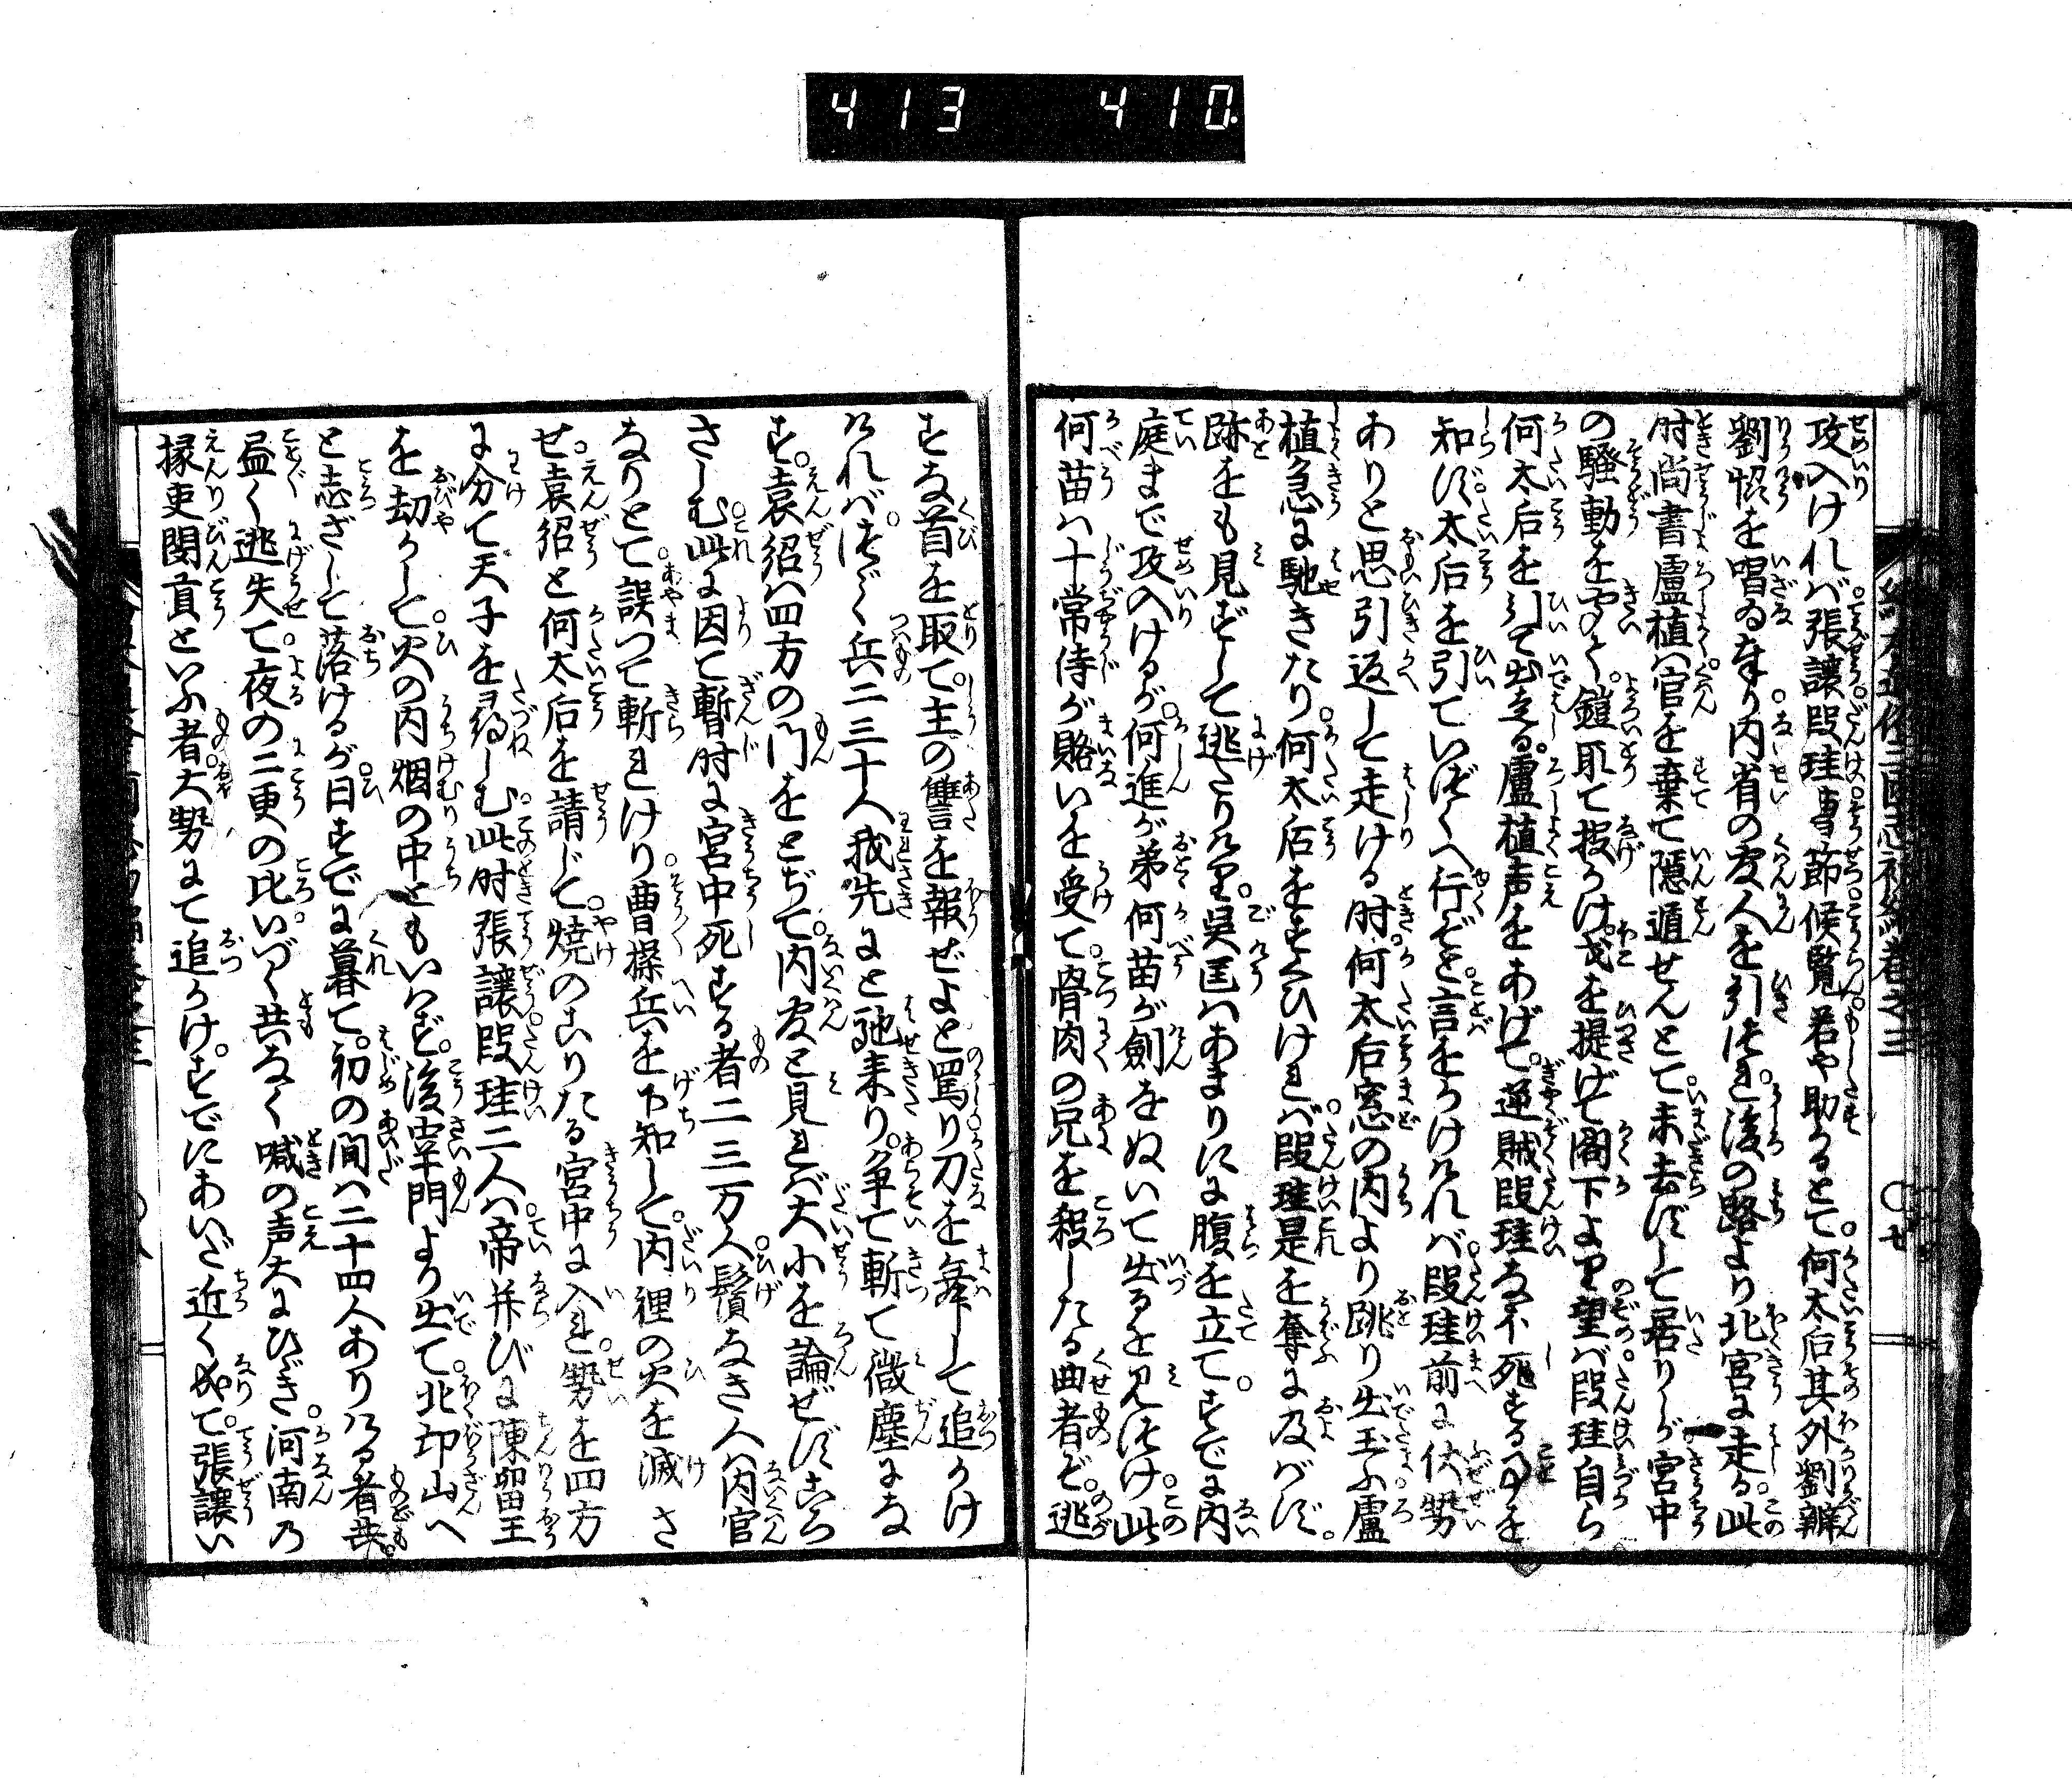 413 410
攻入ければ張譲段珪曹節候覧若や助るとて。何太后其外劉辯
劉恊を唱ゐ奉り内省の官人を引つれ後の路より北宮に走る此
時尚書盧植ハ官を棄て隠遁せんとて未去ずして居りしが宮中
の騒動を聞て。鎧取て投かけ戈を提げて閣下より望バ段珪自ら
何太后を引て出来る。盧植声をあげて。逆賊段珪な不死する事を
知ず太后を引ていづくへ行ぞと言をかけけれバ段珪前に伏勢
ありと思引返して走ける時。何太后窓の内より跳り出玉ふ盧
植急に馳きたり何太后をすくひけれバ段珪是を奪に及バず。
跡をも見ずして逃たりけり。呉匡ハあまりに腹を立て。すでに内
庭まで攻入けるが。何進が弟何苗が劍をぬいて出るを見つけ此
何苗ハ十常侍が賂いを受て。骨肉の兄を殺したる曲者ぞ。逃
すな首を取て。主の讐を報ぜよと罵り刀を舞して追かけ
けれバつゞく兵二三十人我先にと馳来り。争て斬て微塵にな
す。袁紹ハ四方の門をとぢて。内官と見れバ大小を論ぜずころ
さしむ此に因て暫時に宮中死する者二三万人鬚なき人ハ内官
なりとて誤つて斬られけり曹操兵を下知して。内裡の火を滅さ
せ。袁紹と何太后を請じて。焼のこりたる宮中に入れ。勢を四方
に分て天子を尋しむ此時張譲段珪二人ハ帝并びに陳留王
を刧かして火の内烟の中ともいハず。後宰門より出て。北邙山へ
と志ざして落けるが日すでに暮て。初の間ハ二十四人ありける者共。
尽く逃失て夜の二更の比。いづく共なく喊の声大にひゞき。河南の
掾吏閔貢といふ者。大勢にて追かけ。すでにあいだ近くなりて。張譲い